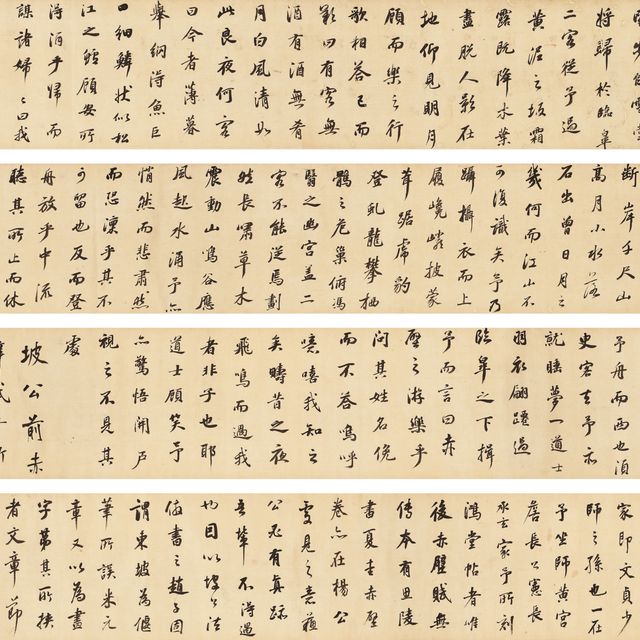 將歸於臨皋
二客從予過
黃泥之坂霜
露既降木葉
盡脫人影在
地仰見明月
顧而樂之行
歌相答已而
歎曰有客無
酒有酒無肴
月白風清如
此良夜何客
曰今者薄暮
舉網得魚巨
口細鱗狀似松
江之鱸顧安所
得酒乎歸而
謀諸婦〻曰我
斷岸千尺山
高月小水落
石出曾日月之
幾何而江山不
可復識矣予乃
躡攝衣而上
履巉巖披蒙
茸踞虎豹
登虬龍攀栖
鶻之危巢俯馮
之幽宮蓋二
客不能從焉劃
然長嘯草木
震動山鳴谷應
風起水涌予亦
悄然而悲肅然
而恐凜乎其不
可留也反而登
舟放乎中流
聽其所止而休
予舟而西也須
臾客去予亦
就睡夢一道士
羽衣翩躚過
臨皋之下揖
予而言曰赤
壁之游樂乎
問其姓名俛
而不答嗚呼
噫嘻我知之
矣疇昔之夜
飛鳴而過我
者非子也耶
道士顧笑予
亦驚悟開戶
視之不見其
處
坡公前赤
家即文貞少
師之孫也一在
予坐師黃宮
詹長公憲長
承玄家予所刻
鴻堂帖者唯
後赤壁賦無
傳本有思陵
書夏圭赤壁
卷亦在楊公
見之意
公必有真跡
吾輩不得過
也因以坡公法
倣書之趙子固
謂東坡為偃
筆所誤米元
章又以為畫
字第其所挾
者文章節